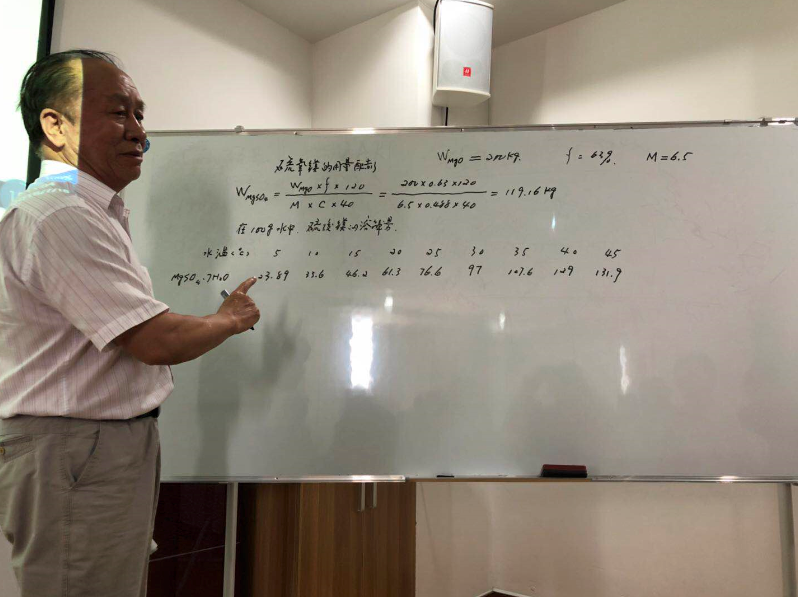 硫氧镁的用量配制 W_MgO = 200kg. f = 63%. M = 6.5
W_MgSO₄ = (W_MgO × f × 120) / (M × C × 40) = (200 × 0.63 × 120) / (6.5 × 0.488 × 40) = 119.16 kg
在100g水中, 硫酸镁的溶解量.
水温(℃) 5 10 15 20 25 30 35 40 45
MgSO₄·7H₂O 23.89 33.6 46.2 61.3 76.6 97 107.6 129 131.9